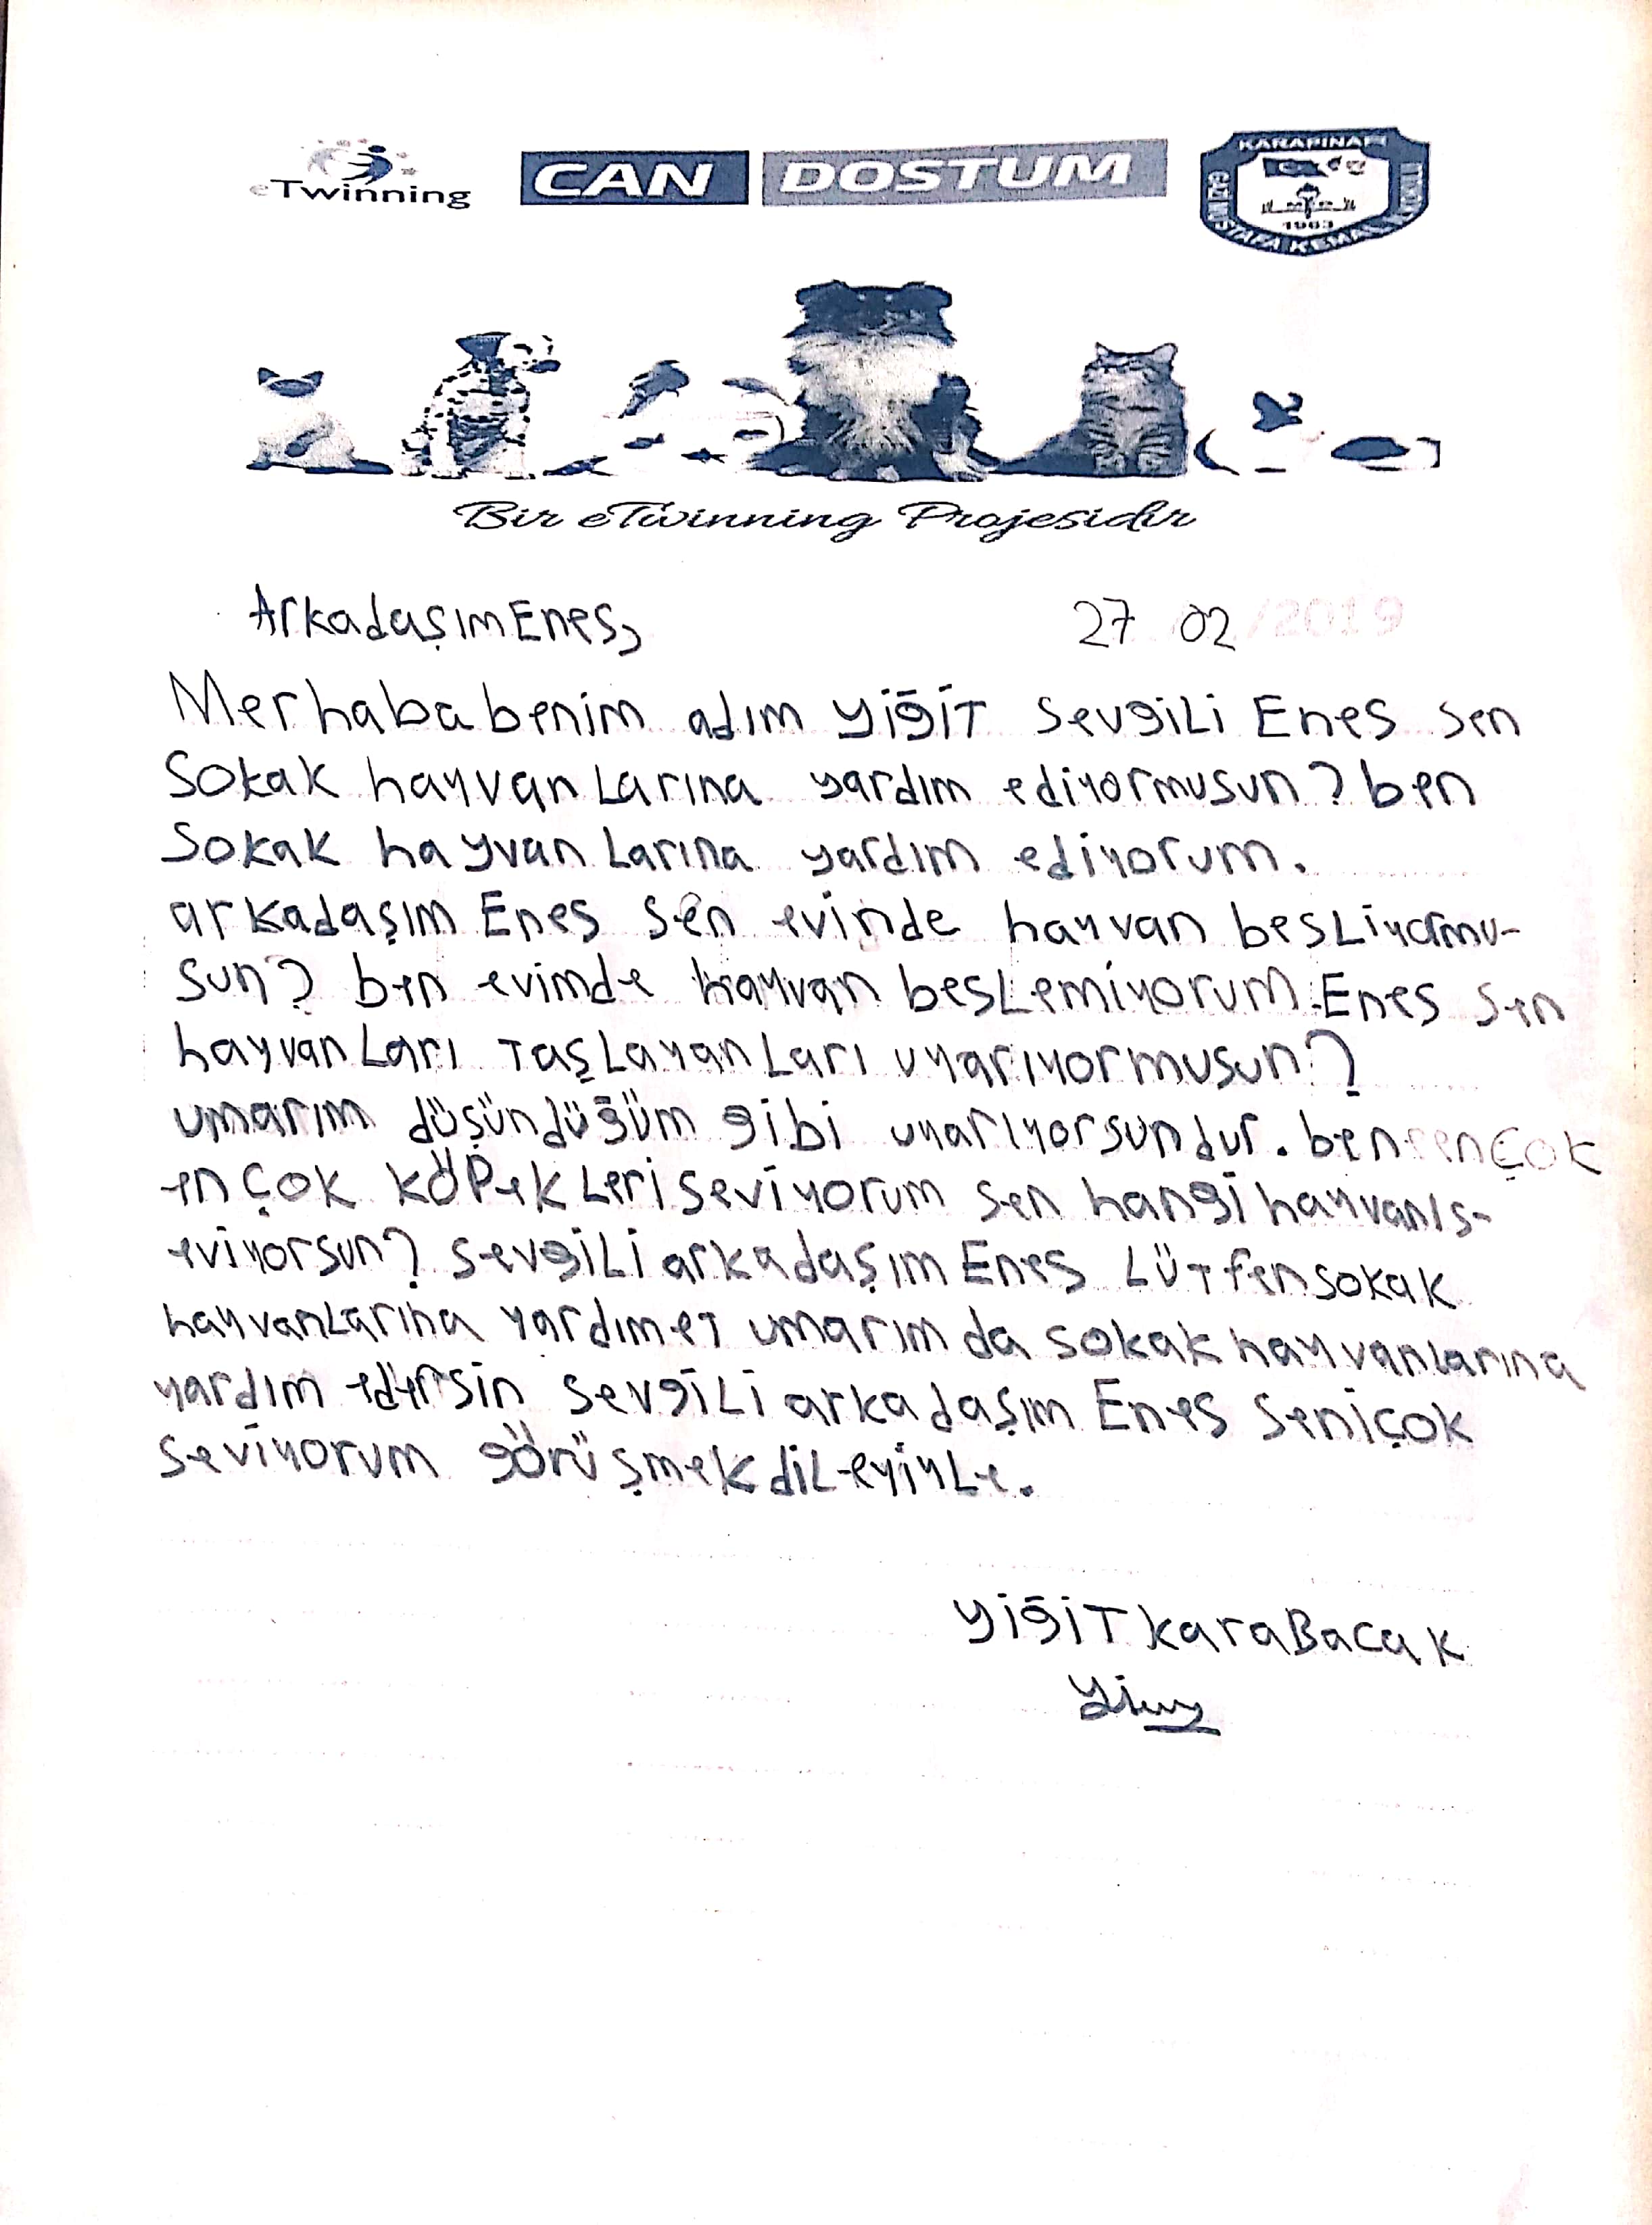 eTwinning CAN DOSTUM KARAPINAR GAZİ MUSTAFA KEMAL 1963
Bir eTwinning Projesidir
Arkadaşım Enes, 27 02 /2019
Merhaba benim adım Yiğit sevgili Enes sen
Sokak hayvanlarına yardım ediyormusun? ben
Sokak hayvanlarına yardım ediyorum.
arkadaşım Enes sen evinde hayvan besliyormu-
sun? ben evimde hayvan beslemiyorum. Enes sen
hayvanları taşlayanları uyarıyormusun?
umarım düşündüğüm gibi uyarıyorsundur. ben en çok
en çok köpekleri seviyorum sen hangi hayvanı s-
eviyorsun? sevgili arkadaşım Enes lütfen sokak
hayvanlarına yardım et umarım da sokak hayvanlarına
yardım edersin sevgili arkadaşım Enes seni çok
seviyorum görüşmek dileyiyle.
Yiğit karaBacak